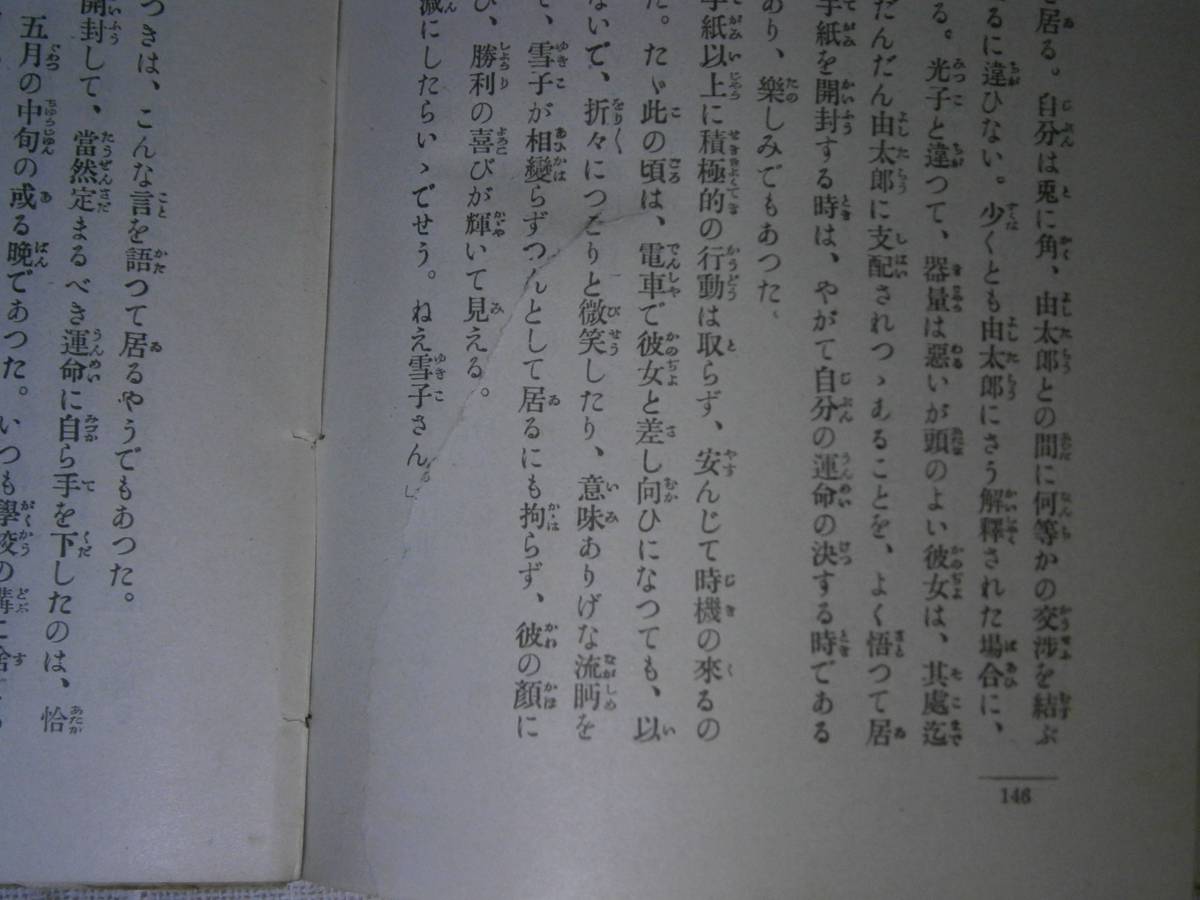 居る。自分は兎に角、由太郎との間に何等かの交渉を結ぶ
るに違ひない。少くとも由太郎にさう解釋された場合に、
る。光子と違つて、器量は惡いが頭のよい彼女は、其處迄
だんだん由太郎に支配されつゝあることを、よく悟つて居
手紙を開封する時は、やがて自分の運命の決する時である
あり、樂しみでもあつた。
手紙以上に積極的の行動は取らず、安んじて時機の來るの
た。たゞ此の頃は、電車で彼女と差し向ひになつても、以
ないで、折々につこりと微笑したり、意味ありげな流眄を
て、雪子が相變らずつんとして居るにも拘らず、彼の顏に
び、勝利の喜びが輝いて見える。
減にしたらいゝでせう。ねえ雪子さん。」
146
つきは、こんな言を語つて居るやうでもあつた。
開封して、當然定まるべき運命に自ら手を下したのは、恰
五月の中旬の或る晩であつた。いつも學校の溝に捨